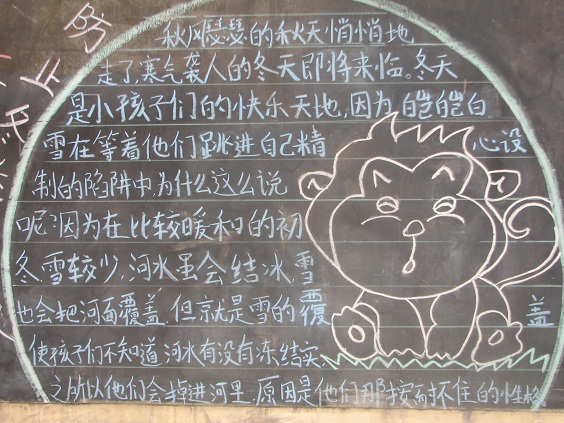 防止
秋风瑟瑟的秋天悄悄地
走了,寒气袭人的冬天即将来临。冬天
是小孩子们的快乐天地,因为,皑皑白
雪在等着他们跳进自己精心设
制的陷阱中,为什么这么说
呢?因为在比较暖和的初
冬,雪较少,河水虽会结冰,雪
也会把河面覆盖,但就是雪的覆盖
使孩子们不知道河水有没有冻结实.
之所以他们会掉进河里,原因是他们那按耐不住的性格